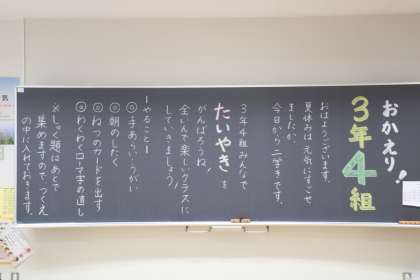 おかえり！
3年4組
おはようございます。
夏休みは元気にすごせ
ましたか。
今日から二学きです。
3年4組みんなで
たいやきを
がんばろうね！
全いんで楽しいクラスに
していきましょう！
ーやることー
◎手あらい・うがい
◎朝のしたく
◎ねつのカードを出す
◎わくわくローマ字の直し
※しゅく題はあとで
集めますのでつくえ
の中に入れておきます。